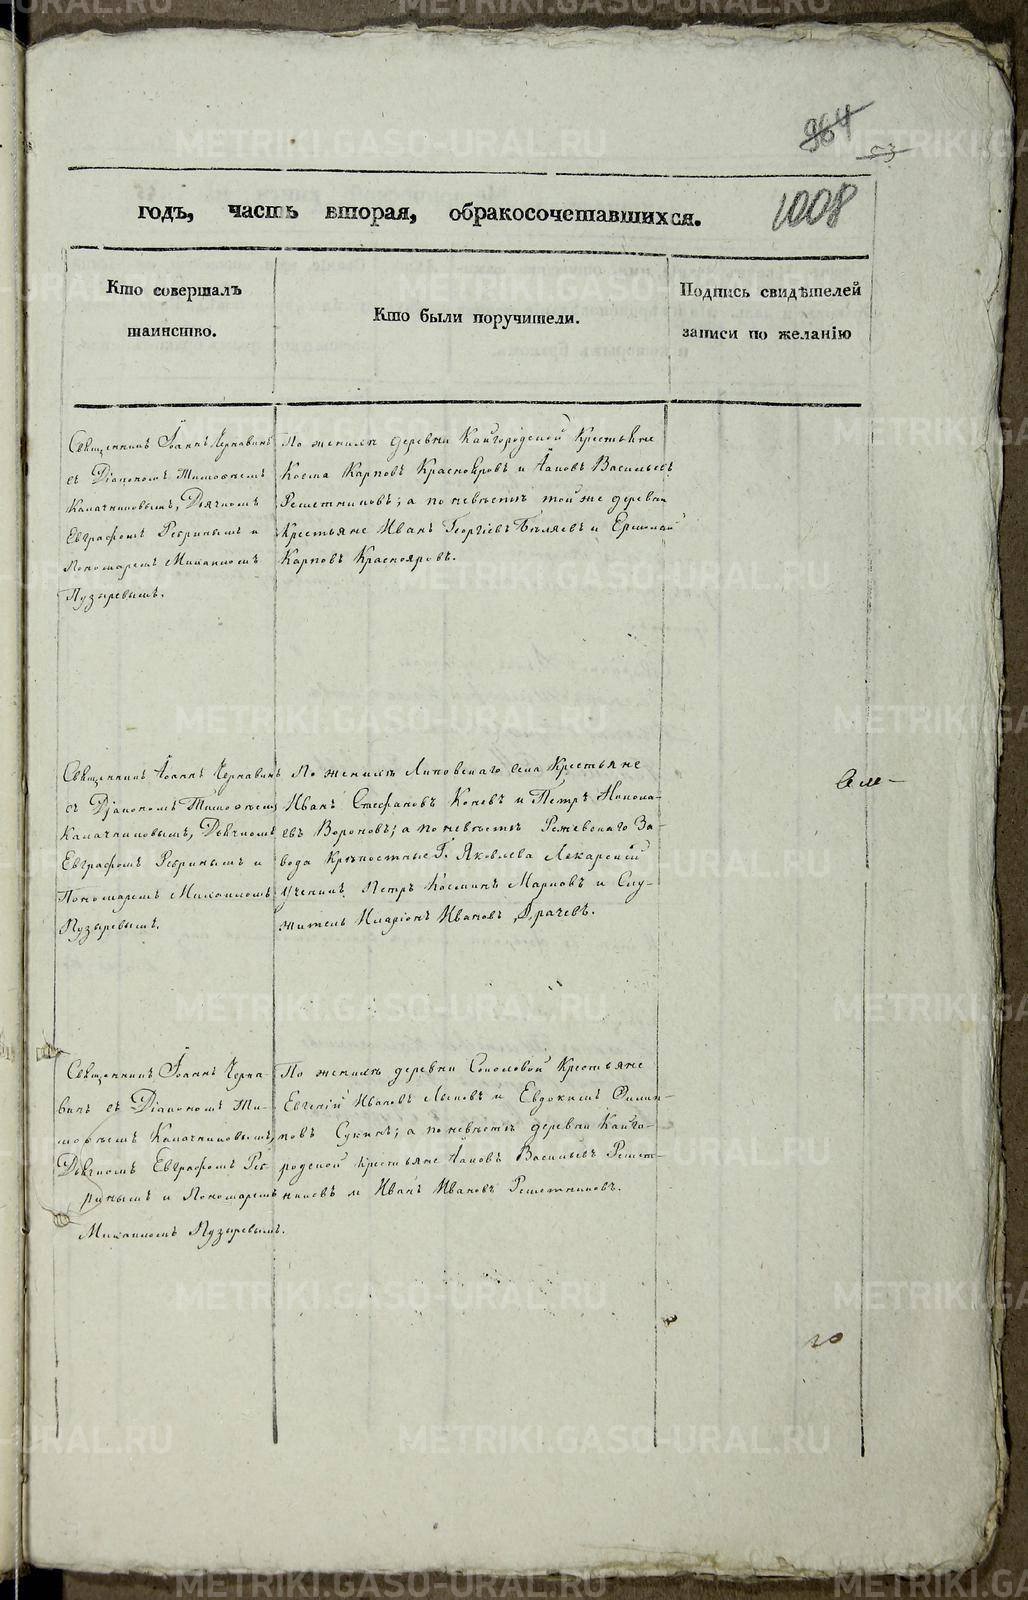 964
53
1008
годъ, часть вторая, обракосочетавшихся.
Кто совершалъ
таинство.
Кто были поручители.
Подпись свидѣтелей
записи по желанію
Священникъ Іоаннъ Чернавинъ
съ Діакономъ Тимофеемъ
Калачниковымъ, Дьячкомъ
Евграфомъ Ребринымъ и
Пономаремъ Михаиломъ
Пузыревымъ.
По женихѣ деревни Кайгородской Крестьяне
Косма Карповъ Краснояровъ и Іаковъ Васильевъ
Решетниковъ; а по невѣстѣ той же деревни
Крестьяне Иванъ Георгіевъ Бѣляевъ и Ермолай
Карповъ Краснояровъ.
Священникъ Іоаннъ Чернавинъ
съ Діакономъ Тимофеемъ
Калачниковымъ, Дьячкомъ
Евграфомъ Ребринымъ и
Пономаремъ Михаиломъ
Пузыревымъ.
По женихѣ Липовскаго села Крестьяне
Иванъ Стефановъ Коневъ и Петръ
евъ Вороновъ; а по невѣстѣ Режевскаго За-
вода Крѣпостные Г. Яковлева Лекарскій
Ученикъ Петръ Косминъ Марковъ и Слу-
житель Иларіонъ Ивановъ Драчевъ.
Священникъ Іоаннъ Черна-
винъ съ Діакономъ Ти-
мофеемъ Калачниковымъ,
Дьячкомъ Евграфомъ Реб-
ринымъ и Пономаремъ
Михаиломъ Пузыревымъ.
По женихѣ деревни Соколовой Крестьяне
Евгеній Ивановъ Лыковъ и Евдокимъ Филип-
повъ Сукинъ; а по невѣстѣ деревни Кайго-
родской крестьяне Іаковъ Васильевъ Решет-
никовъ и Иванъ Ивановъ Решетниковъ.
METRIKI.GASO-URAL.RU